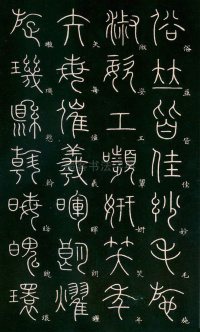 俗並皆佳妙毛施
淑姿工嚬妍笑年
矢每催羲暉朗耀
旋璣懸斡晦魄環